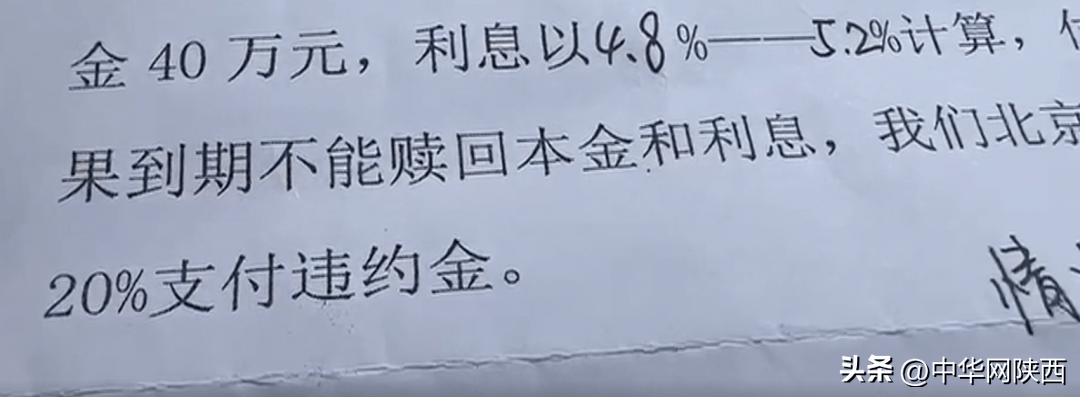 金 40 万元，利息以4.8%——5.2%计算，
果到期不能赎回本金和利息，我们北京
20%支付违约金。
情
头条 @中华网陕西